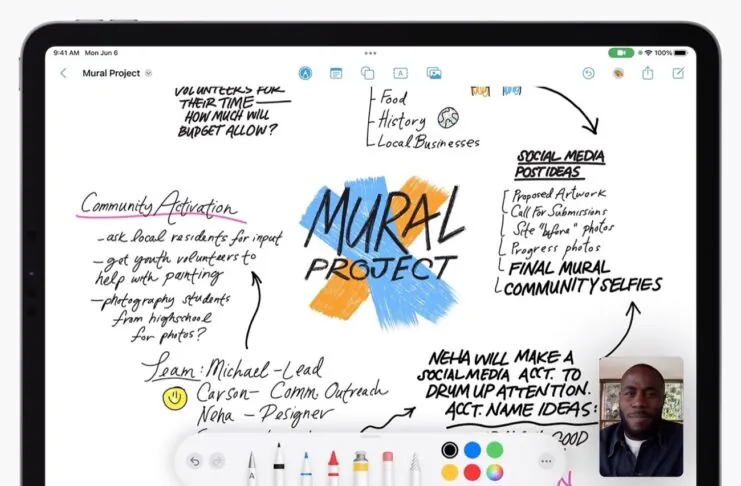 9:41 AM Mon Jun 6
100%
Mural Project
A
VOLUNTEERS FOR
THEIR TIME
HOW MUCH WILL
BUDGET ALLOW?
Food
History
Local Businesses
SOCIAL MEDIA
POST IDEAS
Proposed Artwork
Call For Submissions
Site "before" photos
Progress photos
FINAL MURAL
COMMUNITY SELFIES
Community Activation
- ask local residents for input
- get youth volunteers to
help with painting
- photography students
from highschool
for photos?
MURAL
PROJECT
Team: Michael - Lead
Carson - Comm. Outreach
Neha - Designer
NEHA WILL MAKE A
SOCIAL MEDIA ACCT. TO
DRUM UP ATTENTION.
ACCT. NAME IDEAS:
A